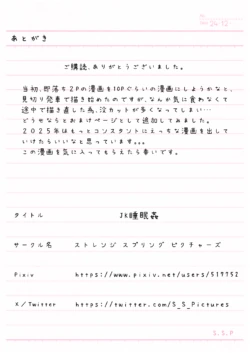 あとがき
ご購読、ありがとうございました。
当初、即落ち2Pの漫画を10Pぐらいの漫画にしようかなと、
見切り発車で描き始めたのですが、なんか気に食わなくて
途中で描き直した為、没カットが多くなってしまい…
どうせならとおまけページとして追加してみました。
2025年はもっとコンスタントにえっちな漫画を出して
いけたらいいなと思っています。。。
この漫画を気に入ってもらえたら幸いです。
タイトル JK睡眠姦
サークル名 ストレンジ スプリング ピクチャーズ
Pixiv https://www.pixiv.net/users/519752
X/Twitter https://twitter.com/S_S_Pictures
S.S.P